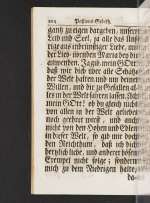 Passions-Gebeth.
gantz zu eigen dargeben, unserer
Leib und Seel, ja alle das
aus inbrünstiger Liebe,
der Lieb
anwenden. Ja gib mein GOtt!
daß wir dich vor alle Schätze
der Welt halten, und um deinet
Willen, und dir zu Gefallen al-
les in der Welt fahren lassen. Ach
mein GOtt! ob du gleich nicht
von allen in der Welt geliebet
noch geehret wirst / und auch
nicht von den Hohen und Edlen
in dieser Welt, so gib mir doch
den Reichthum, daß ich dich
hertzlich liebe, und anderer bösen
Exempel nicht folge; sondern
mich zu dem Niedrigen halte,
da-